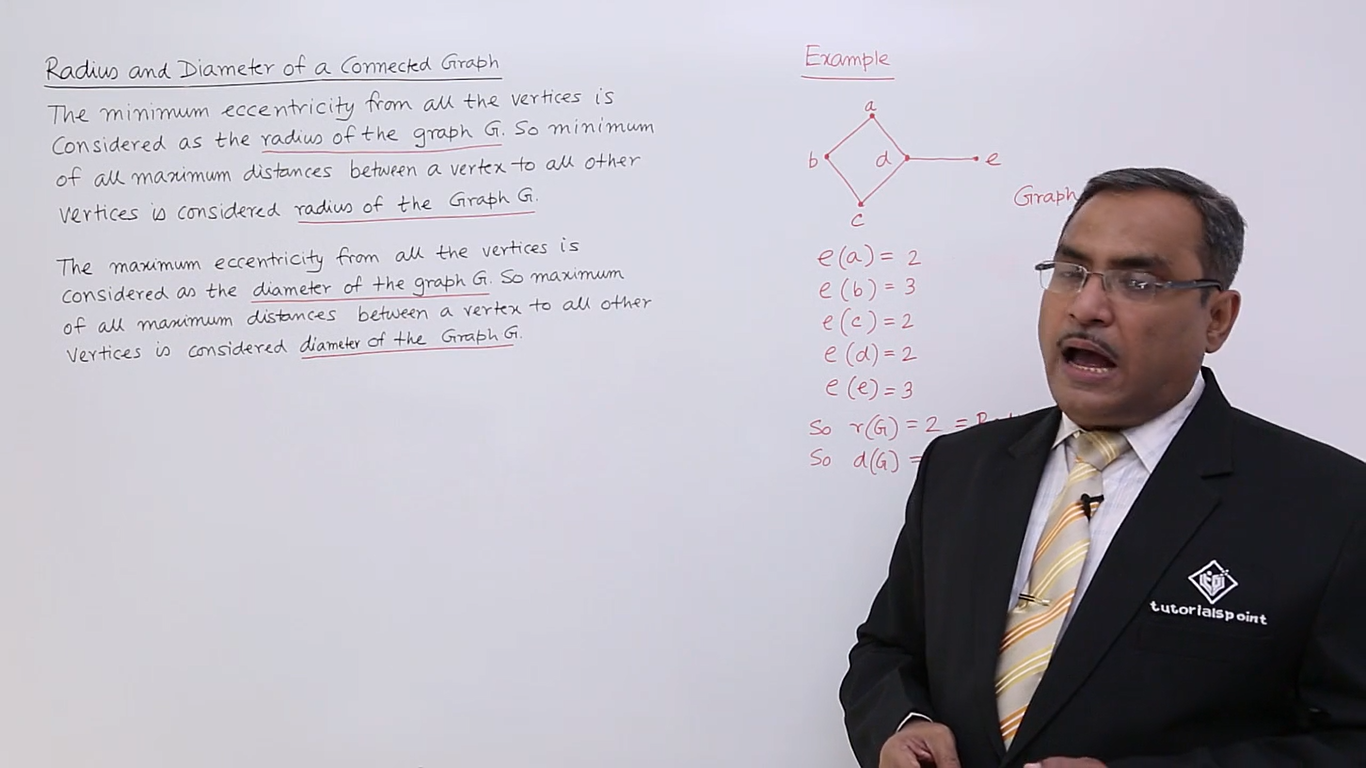 Radius and Diameter of a Connected Graph
The minimum eccentricity from all the vertices is
Considered as the radius of the graph G. So minimum
of all maximum distances between a vertex to all other
vertices is considered radius of the Graph G.
The maximum eccentricity from all the vertices is
considered as the diameter of the graph G. So maximum
of all maximum distances between a vertex to all other
vertices is considered diameter of the Graph G.
Example
a
b
d
e
c
Graph
e(a) = 2
e(b) = 3
e(c) = 2
e(d) = 2
e(e) = 3
So r(G) = 2 =
So d(G) =
tutorialspoint